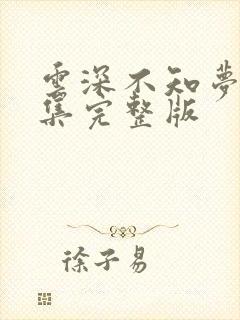 雲深不知夢
集完整版
徐子易